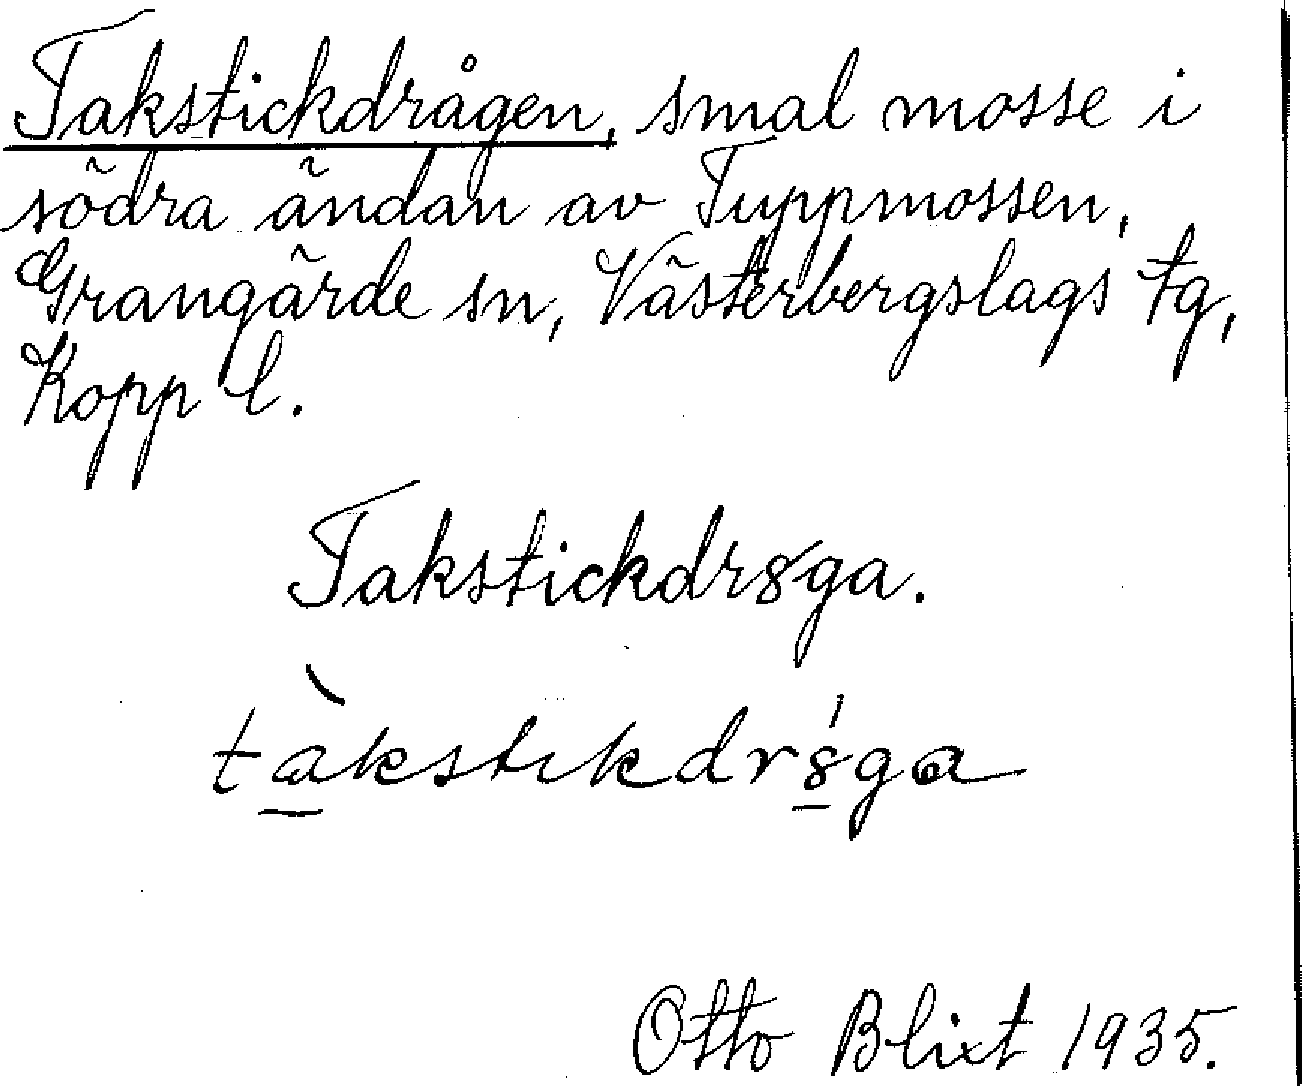 Takstickdrågen, smal mosse i
södra ändan av Tuppmossen,
Grangärde sn, Västerbergslags tg,
Kopp l.
Takstickdr8ga.
tàkstıkdr8́ga
Otto Blixt 1935.